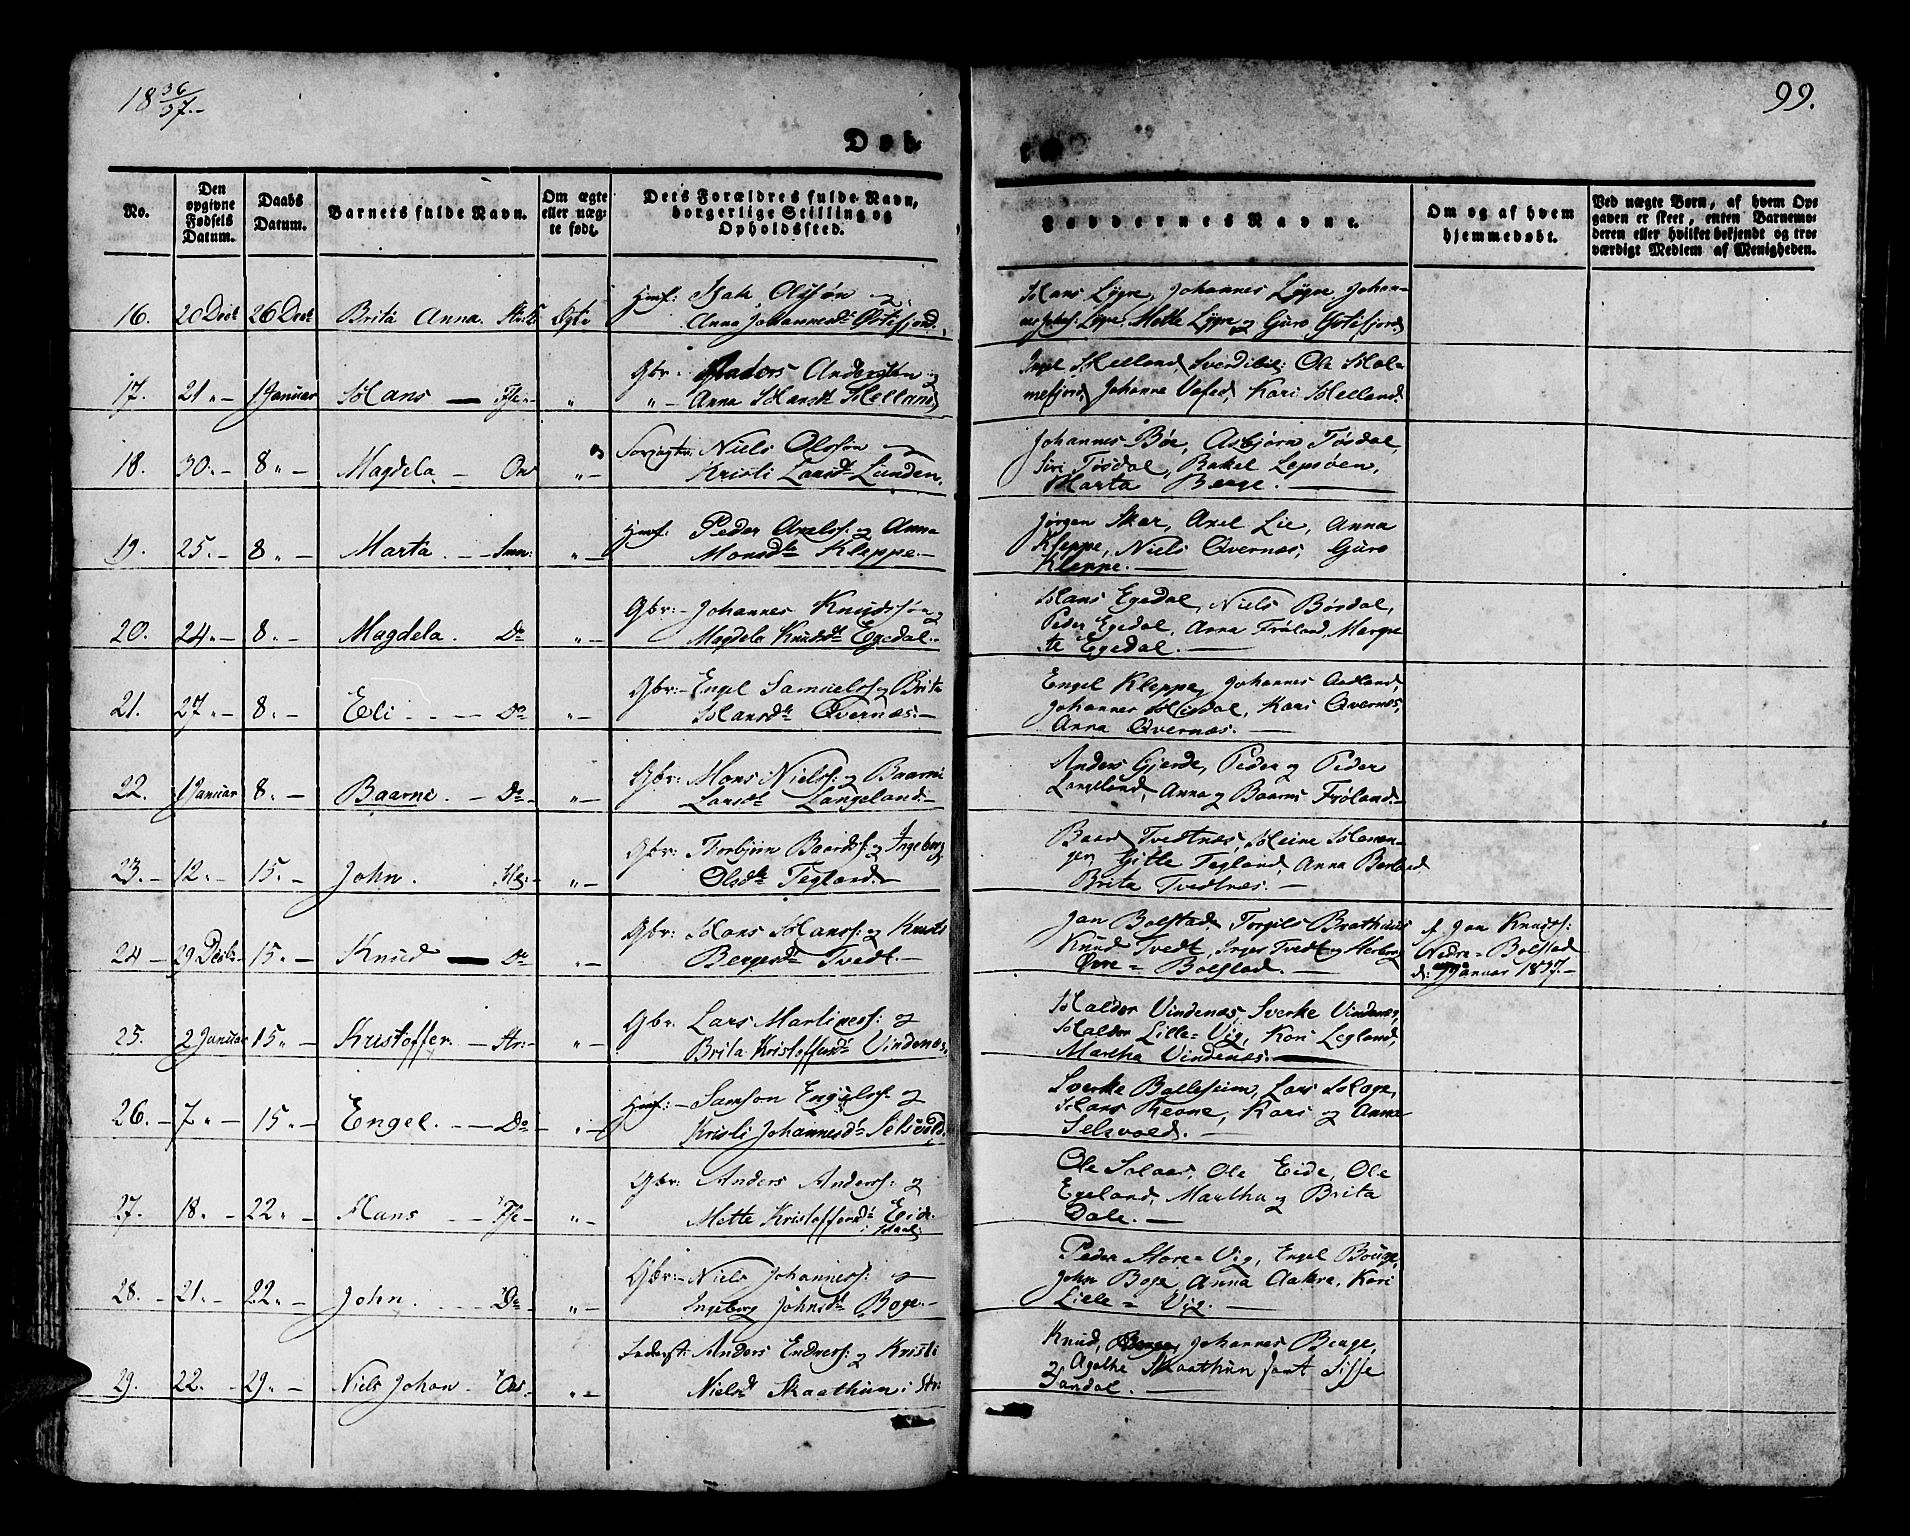 18 36/37.
99.
Døb-
te
No.
Den opgivne Fødsels Datum.
Daabs Datum.
Barnets fulde Navn.
Om ægte eller uæg- te født.
Dets Forældres fulde Navn, borgerlige Stilling og Opholdssted.
Faddernes Navne.
Om og af hvem hjemmedøbt.
Ved uægte Børn, af hvem Op- gaven er skeet, enten Barnemo- deren eller hvilket bekjendt og tro- værdigt Medlem af Menigheden.
16. 20 Decbr 26 Decbr Brita Anna. Ægte Hmf: Isak Olssøn og
Anna Johannesdr Østefjord.
Hans Lygre, Johannes Lygre, Johan-
Lygre, Mette Lygre og Guro Østefjord
17. 21 "- 1 Januar Hans — " Gbr: Anders Anderssen og
"- Anna Hansdr Helland
Helland, Ole Hol-
mefjord, Johanne Kari Helland.
18. 30 "- 8 "- Magdela — "- Niels Olssøn og
Kristi Larsdr Lunden.
Johannes Bøe, Asbjørn Tøsdal,
Siri Tøsdal, Rakel Lepsøen,
Marta Berge. —
19. 25. "- 8 "- Marta. "- Hmf: Peder Axelss: og Anna
Monsdr Kleppe. —
Jørgen Skar, Axel Lie, Anna
Kleppe, Niels Qvernæs, Guro
Kleppe. —
20. 24 "- 8 "- Magdela. Do "- Gbr: - Johannes Knudssøn og
Magdela Knudsdr Egedal. -
Hans Egedal, Niels Børdal,
Peder Egedal, Anna Frøland, Margre-
te Egedal. —
21. 27 "- 8 "- Eli Do "- Gbr: - Engel Samuelss og Brita
Hansdr Qvernæs. —
Engel Kleppe, Johannes Aadland,
Johannes Hisdal, Kari Qvernæs,
Anna Qvernæs. —
22. 1 Januar 8 "- Baarni. — Do "- Gbr: Mons Nielss: og Baarni
Larsdr Langeland. —
Anders Gjerde, Peder og Peder
Langeland, Anna og Baarni Frøland. -
23. 12 "- 15 "- John. "- Gbr: Torbjørn Baardss: og Ingeborg
Olsdr Tegland. —
Baar Tvedtnæs, Heine
Gitte Tegland, Anna Berland
Brita Tvedtnæs. —
24 - 29 Decbr - 15 "- Knud — Do "- Gbr: Hans Hanss: og Kristi
Bergesdr Tvedt. —
Jan Bolstad, Torgils
Knud Tvedt, Inger Tvedt og Herborg
Øvre = Bolstad. —
af Jan Knudss:
Nedre = Bolstad
d: Januar 1837. -
25. 2 Januar 15 "- Kristoffer. "- Gbr: Lars Martiness: og
Brita Kristoffersdr Vindenæs.
Haldor Vindenæs, Sverke Vindenæs,
Haldor Lille = Vig, Kari Legland,
Martha Vindenæs. —
26. - 7 "- 15 "- Engel. Do - "- Hmf: - Samson Engelss: og
Kristi Johannesdr Selsvold.
Sverke Balleseim, Lars Hage,
Hans Reone, Kari og Anna
Selsvold. —
27. 18. - 22 "- Hans "- Gbr: Anders Anderss: og
Mette Kristoffersdr Eide
Ole Salaas, Ole Eide, Ole
Egeland, Martha og Brita
Dale. —
28. - 21. - 22. "- John. Do "- Gbr: - Niels Johanness: og
Ingeborg Johnsdr Boge. —
Peder Store = Vig, Engel Bouge,
John Boge, Anna Aakre, Kari
Lille = Vig. —
29. 22. - 29 "- Niels Johan "- Anders Endress: og Kristi
Nielsdr Skaathun i
Knud, Johannes Berge,
Agathe Skaathun samt Sisse
Jardal. —